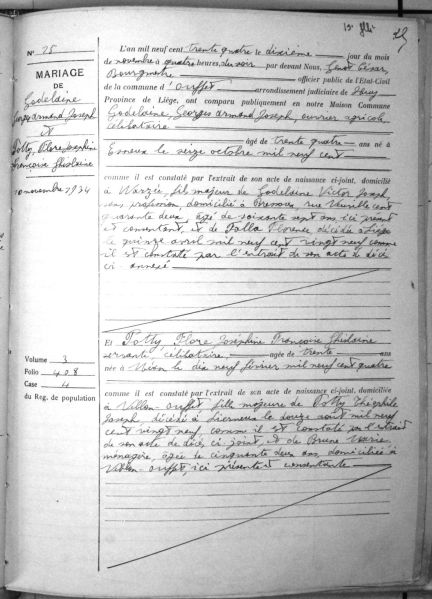 N° 25
MARIAGE
DE
Godelaine
Georges Armand Joseph
et
Potty, Flore Joséphine
Françoise Ghislaine
10 novembre 1934
L'an mil neuf cent trente quatre le dixième jour du mois
de novembre à quatre heures, du soir par devant Nous, César,
Bourgmestre officier public de l'Etat-Civil
de la commune d'Ouffet arrondissement judiciaire de Huy
Province de Liège, ont comparu publiquement en notre Maison Commune
Godelaine, Georges Armand Joseph, ouvrier agricole,
célibataire
âgé de trente quatre ans né à
Esneux le seize octobre mil neuf cent
comme il est constaté par l'extrait de son acte de naissance ci-joint, domicilié
à Warzée, fils majeur de Godelaine Victor Joseph,
sans profession, domicilié à rue cent
quarante deux, âgé de soixante sept ans ici présent
et consentant, et de Falla Florence décédée à Liège
le quinze avril mil neuf cent vingt neuf comme
il est constaté par l'extrait de son acte de décès
ci annexé
Et Potty, Flore, Joséphine Françoise Ghislaine
servante, célibataire, agée de trente ans
née à le dix neuf février mil neuf cent quatre
Volume 3
Folio 408
Case 4
du Reg. de population
comme il est constaté par l'extrait de son acte de naissance ci-joint, domiciliée
à -Ouffet fille majeure de Potty Théophile
Joseph, décédé à Lierneux le douze août mil neuf
cent vingt neuf, comme il est constaté par l'extrait
de son acte de décès ci joint, et de Marie,
ménagère, âgée de cinquante deux ans, domiciliée à
-Ouffet, ici présente et consentante